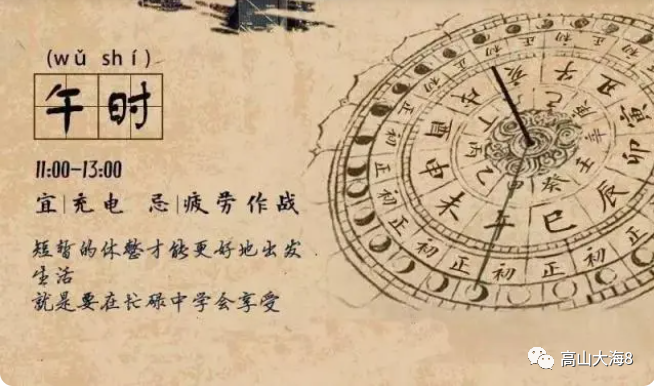 (wǔ shí)
午时
11:00-13:00
宜|充电 忌|疲劳作战
短暂的休整才能更好地出发
生活
就是要在忙碌中学会享受
子 丑 寅 卯 辰 巳 午 未 申 酉 戌 亥
甲 乙 丙 丁 己 庚 辛 壬 癸
正 初 正 初 正 初 正 初
高山大海8